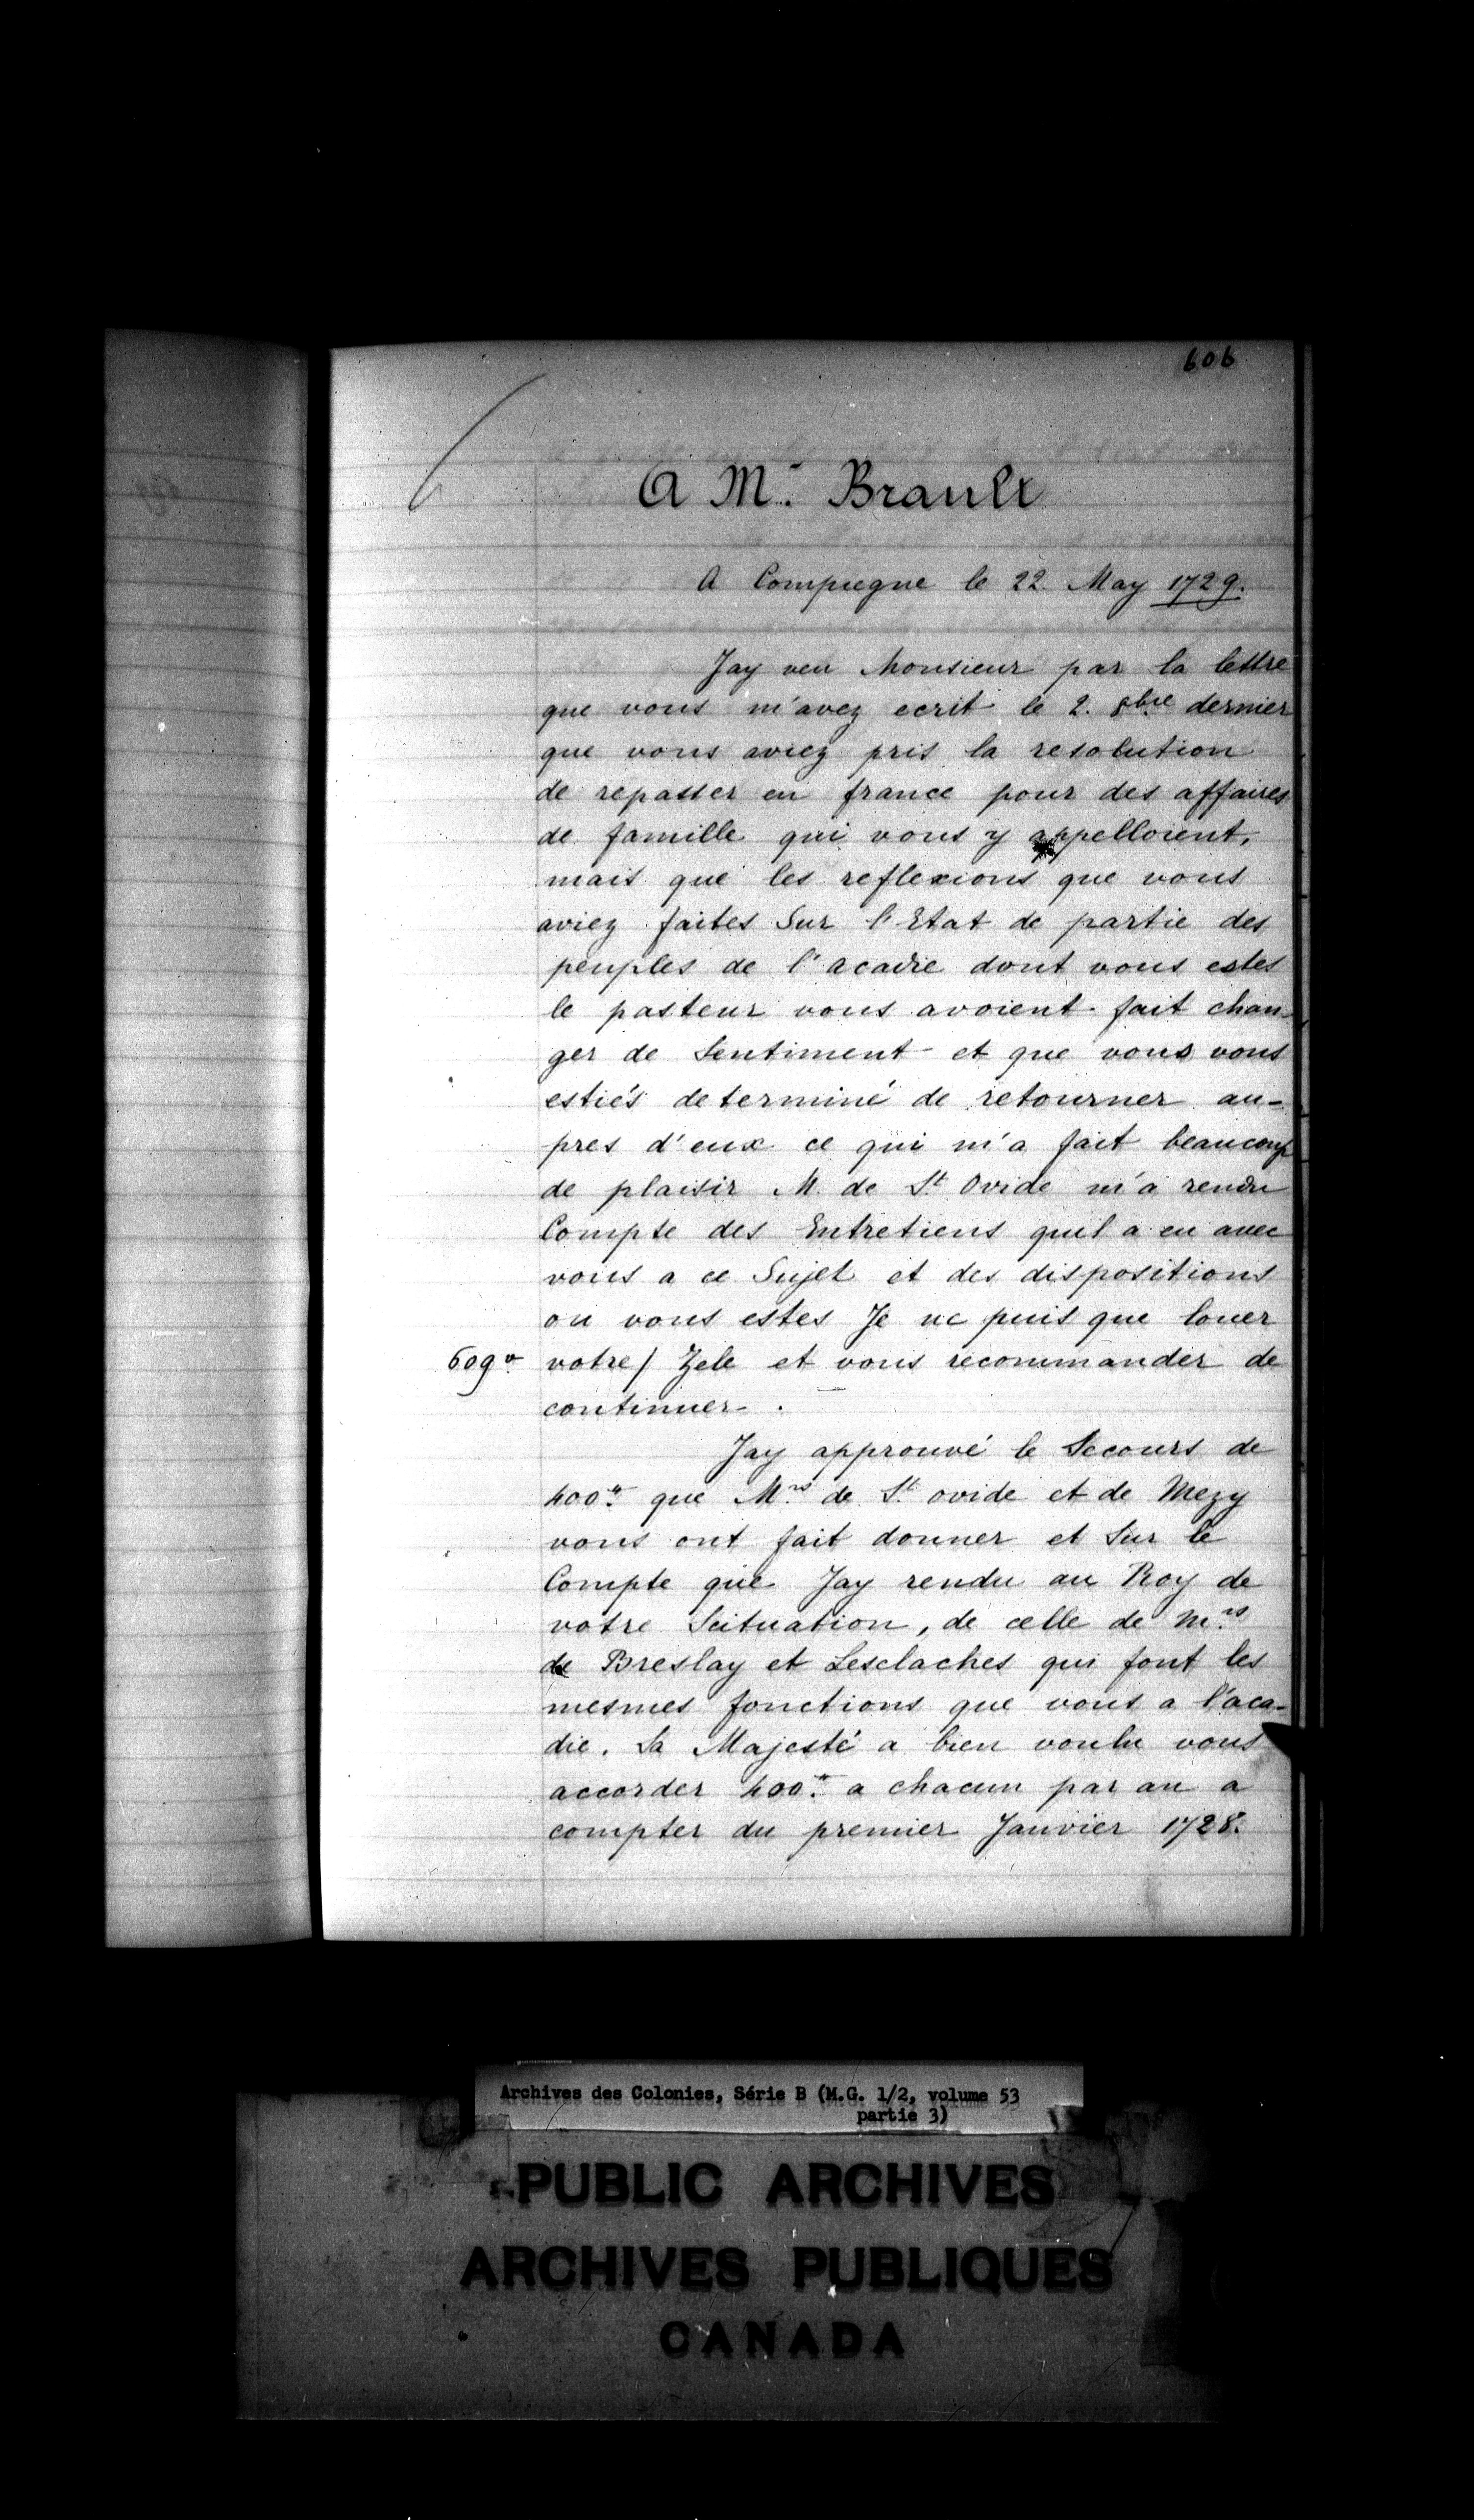 606
A M.r Brault
A Compiegne le 22. May 1729.
Jay veu Monsieur par la lettre
que vous m'avez ecrit le 2. 8bre dernier
que vous aviez pris la resolution
de repasser en france pour des affaires
de famille qui vous y appelloient,
mais que les reflexions que vous
aviez faites Sur l'Etat de partie des
peuples de l'acadie dont vous estes
le pasteur vous avoient fait chan-
ger de Sentiment et que vous vous
estiés determiné de retourner au-
pres d'eux ce qui m'a fait beaucoup
de plaisir M. de St Ovide m'a rendu
Compte des Entretiens quil a eu avec
vous a ce Sujet et des dispositions
ou vous estes Je ne puis que louer
609 v. votre/ Zele et vous recommander de
continuer.
Jay approuvé le Secours de
400.# que M.rs de St. ovide et de Mezy
vous ont fait donner et Sur le
Compte que Jay rendu au Roy de
votre Scituation, de celle de M.rs
de Breslay et Lesclaches qui font les
mesmes fonctions que vous a l'aca-
die. Sa Majesté a bien voulu vous
accorder 400.# a chacun par an a
compter du premier Janvier 1728.
Archives des Colonies, Série B (M.G. 1/2, volume 53
partie 3)
PUBLIC ARCHIVES
ARCHIVES PUBLIQUES
CANADA